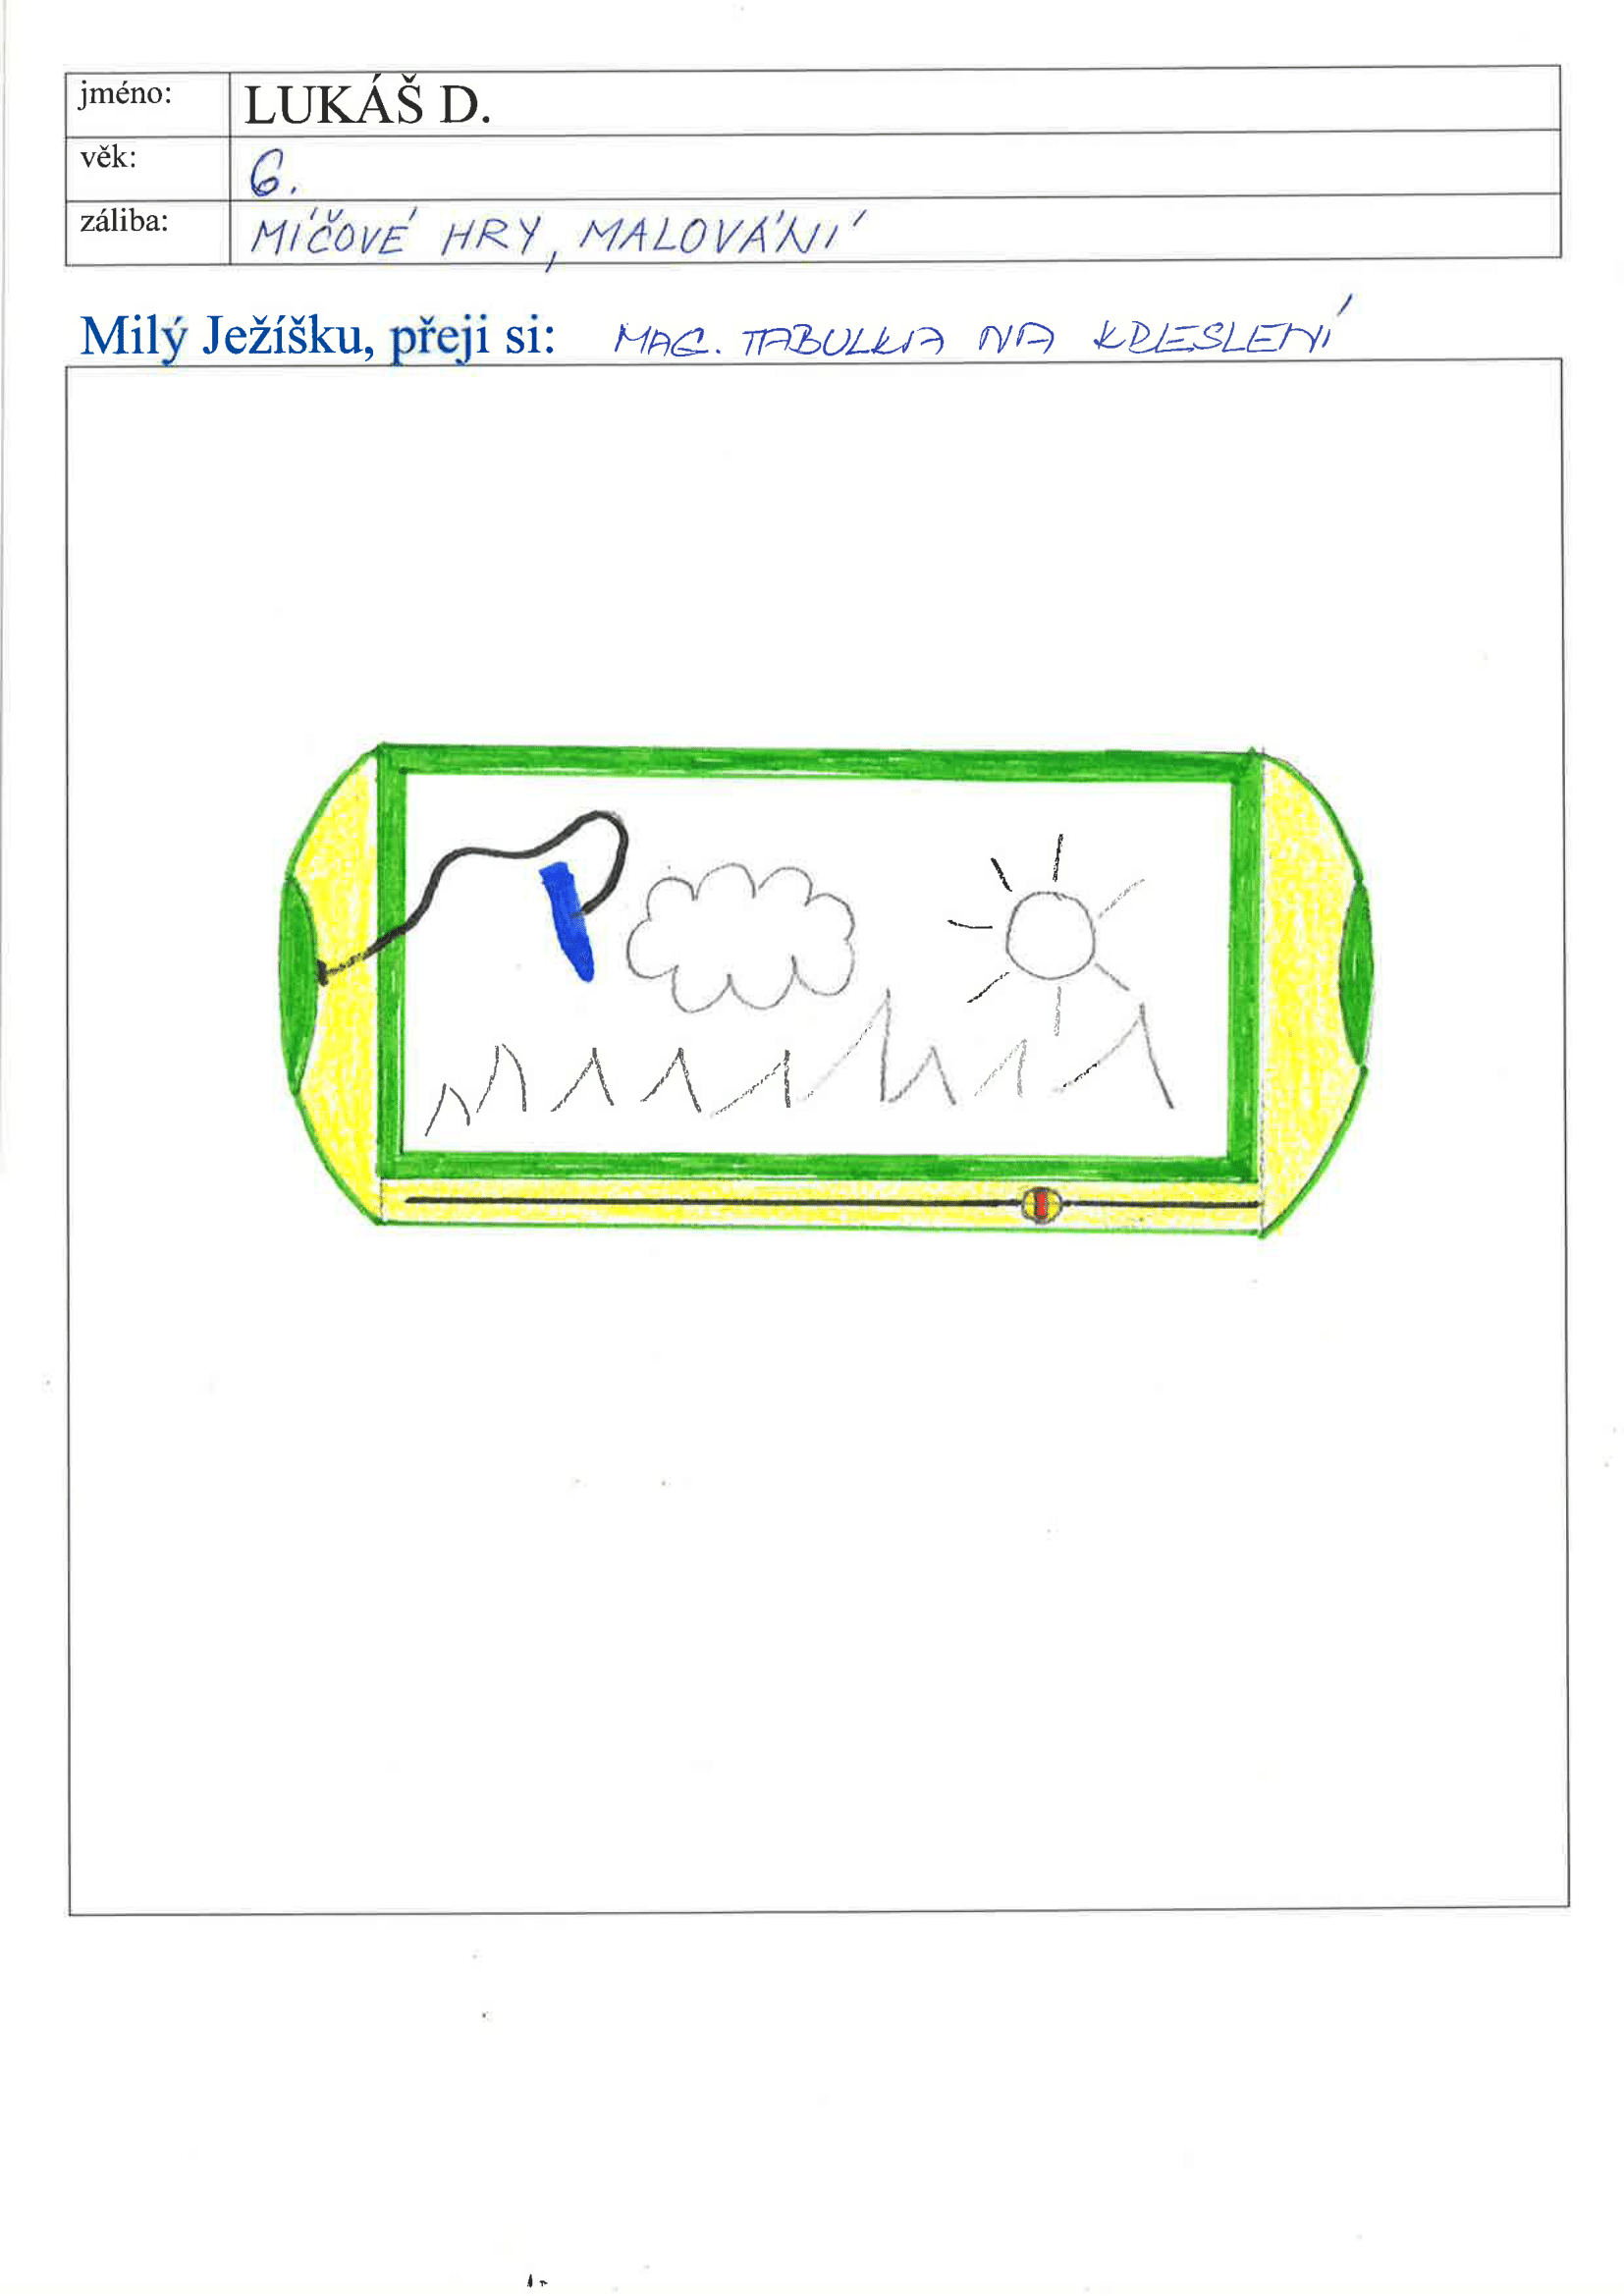 jméno: LUKÁŠ D.
věk: 6.
záliba: MÍČOVÉ HRY, MALOVÁNÍ
Milý Ježíšku, přeji si: MAG. TABULKA NA KRESLENÍ